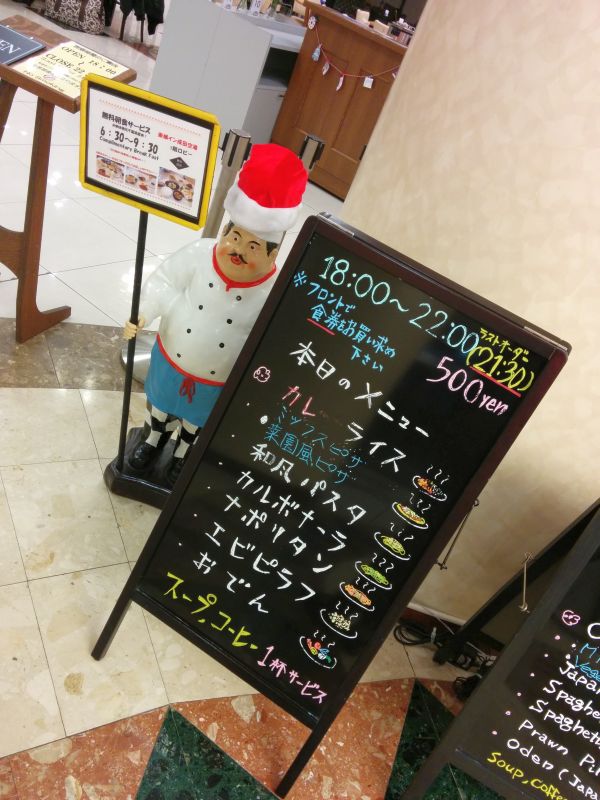 OPEN 18:00
CLOSE 22
無料朝食サービス
6:30～9:30
Complimentary Break Fast
東横イン成田空港
1階ロビー
18:00～22:00
ラストオーダー
(21:30)
※フロントで
食券をお買い求め
下さい
500yen
本日のメニュー
カレーライス
・ミックスピザ
菜園風ピザ
・和風パスタ
・カルボナーラ
・ナポリタン
・エビピラフ
・おでん
スープ,コーヒー1杯サービス
Japan
Spaghe
Spaghett
Prawn Pi
Oden (Japa
Soup, Coffe